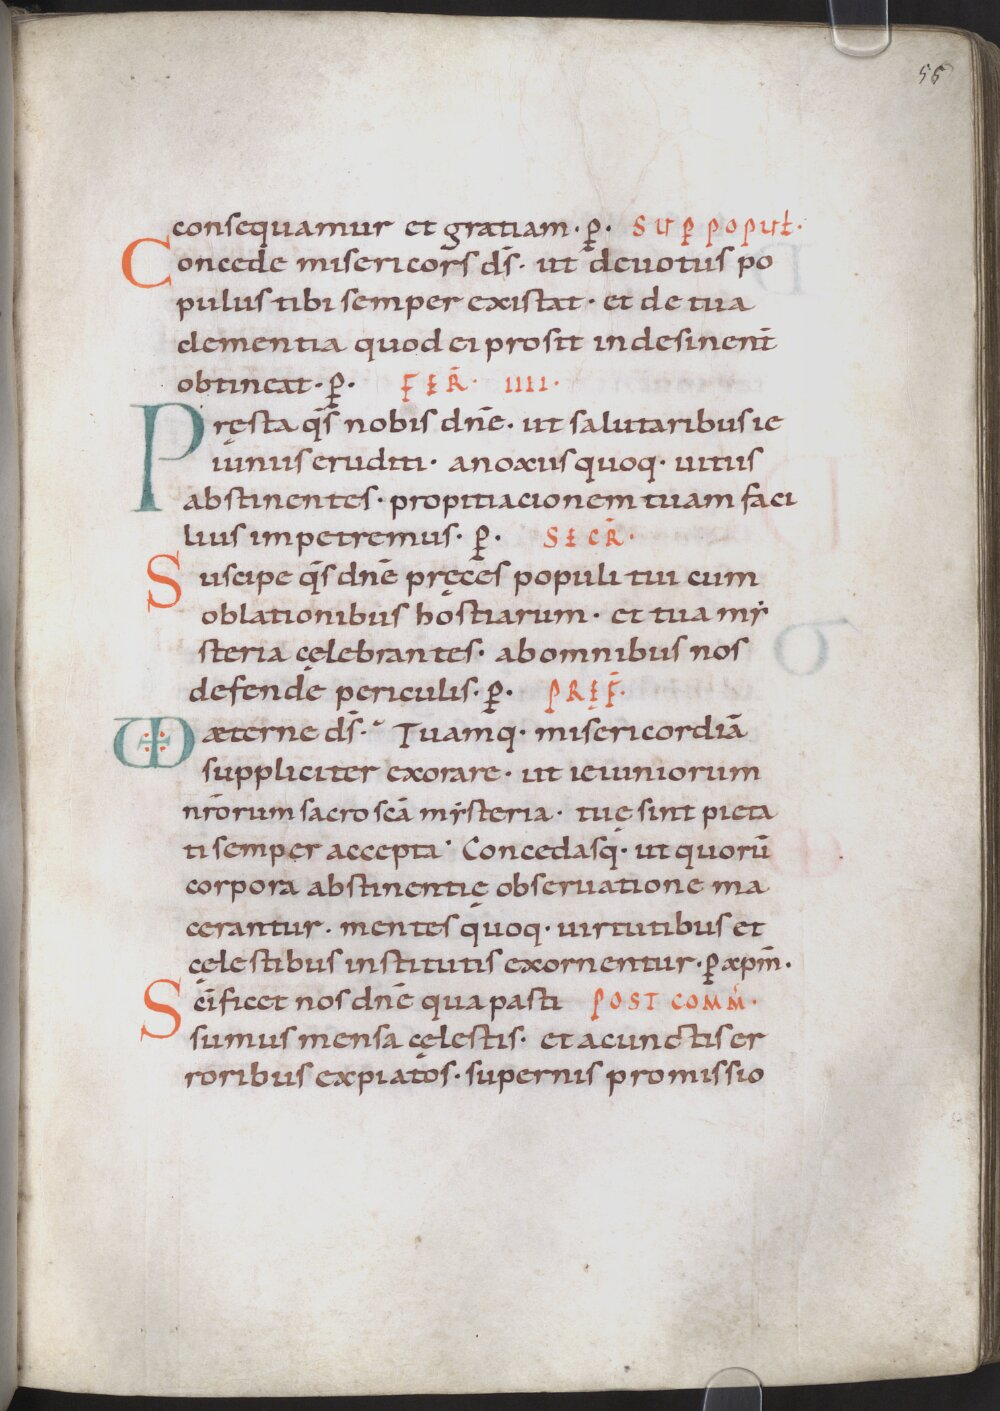 56
consequamur et gratiam · p̲ · SUP POPUL̄ ·
Concede misericors d̄s · ut deuotus po
pulus tibi semper existat · et de tua
clementia quod ei prosit indesinent̄
obtineat · p̲ · FER̄ · IIII ·
Pręsta q̄s nobis dn̄e · ut salutaribus ie
iuniis eruditi · a noxiis quoq· uitiis
abstinentes · propitiacionem tuam faci
lius impetremus · p̲ · SECR̄ ·
Suscipe q̄s dn̄e pręces populi tui cum
oblationibus hostiarum · et tua my
steria cęlebrantes · ab omnibus nos
defende periculis · p̲ · PREF̄ ·
VD æterne d̄s · Tuamq· misericordiā
suppliciter exorare · ut ieiuniorum
nr̄orum sacro sc̄a mysteria · tuę sint pieta
ti semper accepta · Concedasq· ut quorū
corpora abstinentię obseruatione ma
cerantur · mentes quoq· uirtutibus et
cęlestibus institutis exornentur · p̲ xp̄m ·
Sc̄ificet nos dn̄e qua pasti POST COMM̄ ·
sumus mensa cęlestis · et a cunctis er
roribus expiatos · supernis promissio